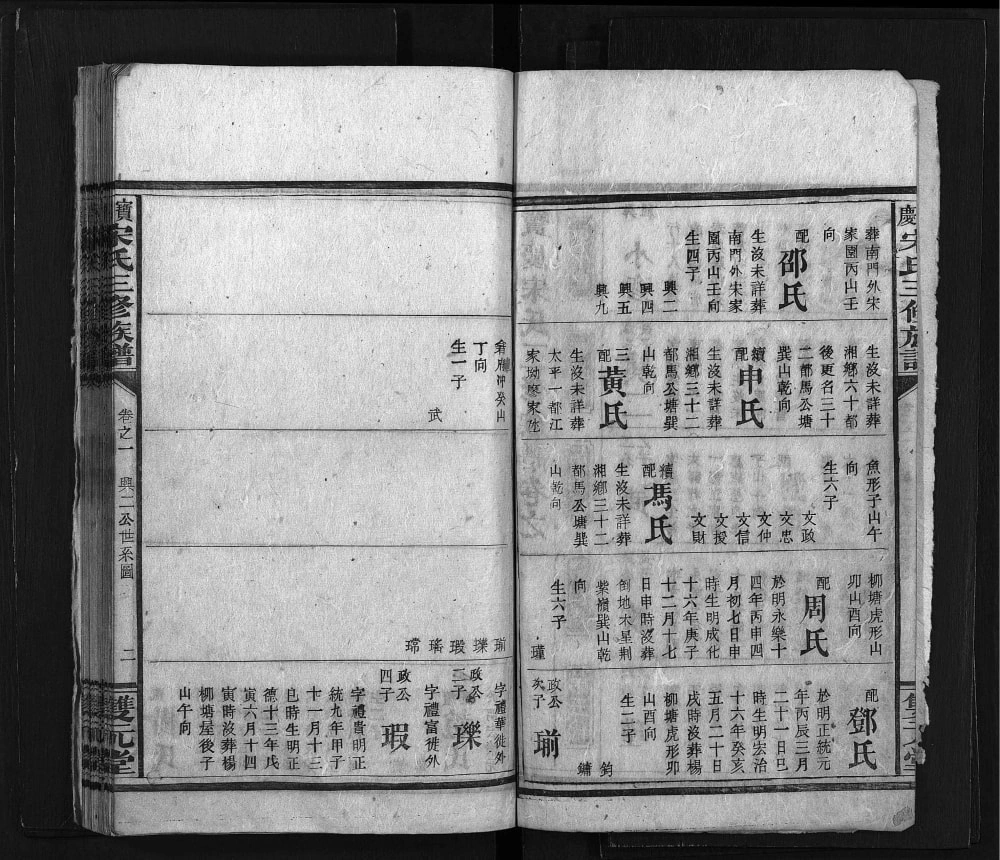 慶宋氏三修族譜
葬南門外宋
家園丙山壬
向
配
邵氏
生沒未詳葬
南門外宋家
園丙山壬向
生四子
興二
興四
興五
興九
生沒未詳葬
湘鄉六十都
後更名三十
二都馬公塘
巽山乾向
續配
申氏
生沒未詳葬
湘鄉三十二
都馬公塘巽
山乾向
三配
黃氏
生沒未詳葬
太平一都江
家坳廖家
魚形子山午
向
生六子
文政
文忠
文仲
文信
文授
文財
續配
馮氏
生沒未詳葬
湘鄉三十二
都馬公塘巽
山乾向
柳塘虎形山
卯山酉向
配
周氏
於明永樂十
四年丙申四
月初七日申
時生明成化
十六年庚子
十二月十七
日申時沒葬
倒地木星荆
紫嶺巽山乾
向
生六子
瓘
配
鄧氏
於明正統元
年丙辰三月
二十一日巳
時生明宏治
十六年癸亥
五月二十日
戌時沒葬楊
柳塘虎形卯
山酉向
生二子
鈞
鏞
政公
次子
瑚
丁向
生一子
武
瑚
瓅
瑕
瑤
字禮華徙外
政公
三子
瓅
字禮富徙外
政公
四子
瑕
字禮貴明正
統九年甲子
十一月十三
巳時生明正
德十三年戊
寅六月十四
寅時沒葬楊
柳塘屋後子
山午向
寶宋氏三修族譜
卷之一
興二公世系圖
二
雙元堂